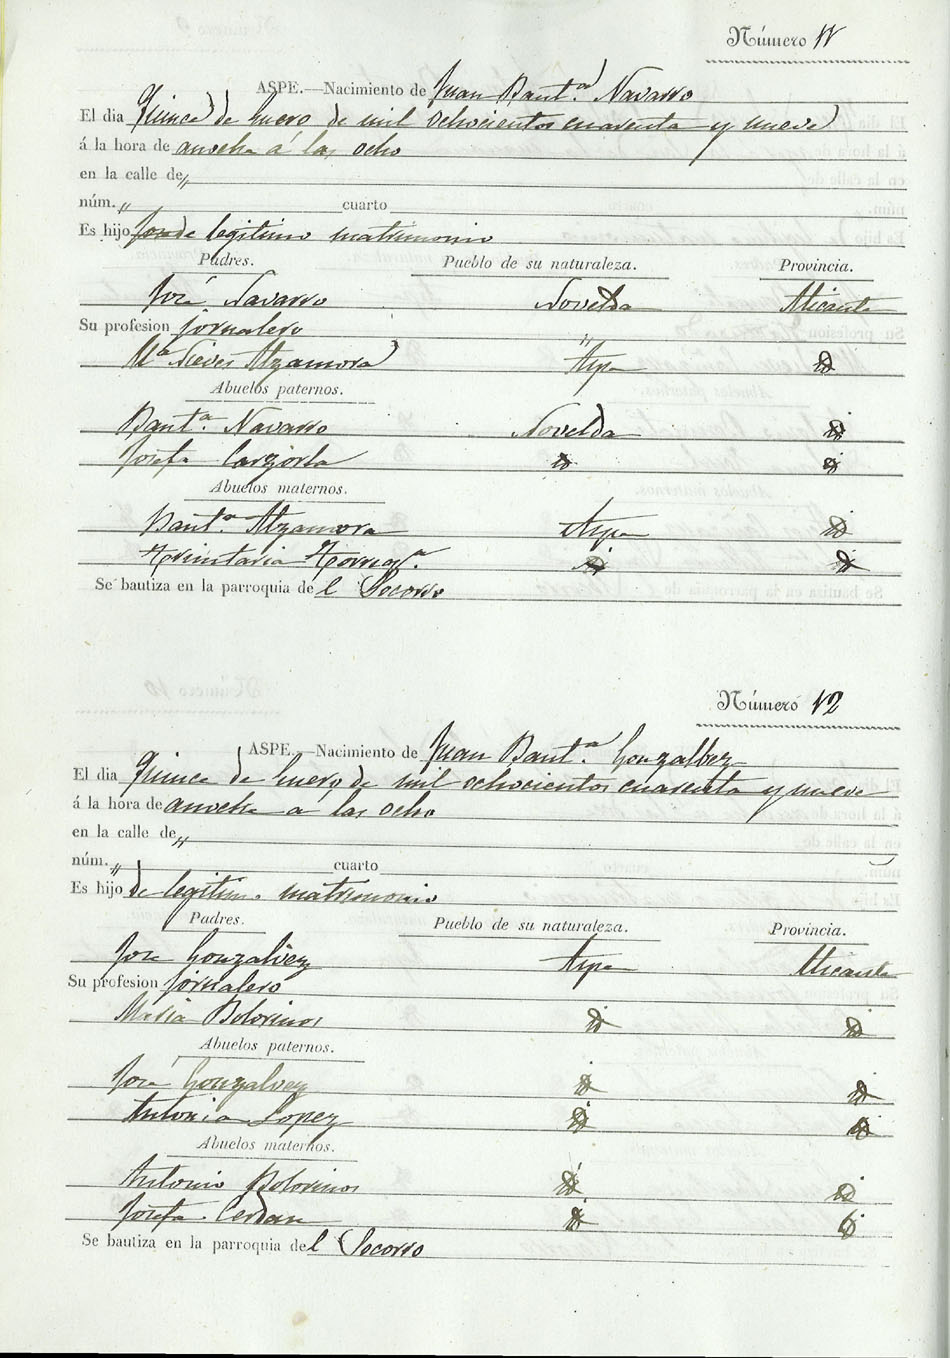 Número 11
ASPE.—Nacimiento de Juan Baut.a Navarro
El dia Quince de Enero de mil ochocientos cuarenta y nueve
á la hora de anoche á las ocho
en la calle de „
núm. „ cuarto
Es hijo de legitimo matrimonio
Padres. Pueblo de su naturaleza. Provincia.
José Navarro Novelda Alicante
Su profesion jornalero
M.a Nieves Alzamora Aspe id
Abuelos paternos.
Baut.a Navarro Novelda id
Josefa Cazorla id id
Abuelos maternos.
Baut.a Alzamora Aspe id
id id
Se bautiza en la parroquia del Socorro
Número 12
ASPE.—Nacimiento de Juan Baut.a Gonzalbez
El dia Quince de Enero de mil ochocientos cuarenta y nueve
á la hora de anoche a las ocho
en la calle de „
núm. „ cuarto
Es hijo de legitim.o matrimonio
Padres. Pueblo de su naturaleza. Provincia.
José Gonzalvez Aspe Alicante
Su profesion jornalero
Maria Bolorinos id id
Abuelos paternos.
José Gonzalvez id id
Antonia Lopez id id
Abuelos maternos.
Antonio Bolorinos id id
Josefa Cerdan id id
Se bautiza en la parroquia del Socorro